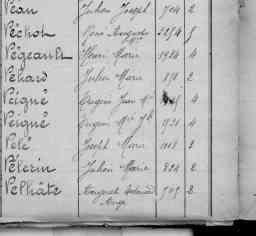 Péan Julien Joseph 704 2
Péchot René Auguste 2254 5
Pégeault Henri Marie 1984 4
Peliard Julien Marie 898 2
Peigné Eugène Jean Mie 4
Peigné Eugène Mie Jh 1921 4
Pelé Joseph Marie 1008 2
Pélerin Julien Marie 824 2
Pelhâte Auguste Ange 2